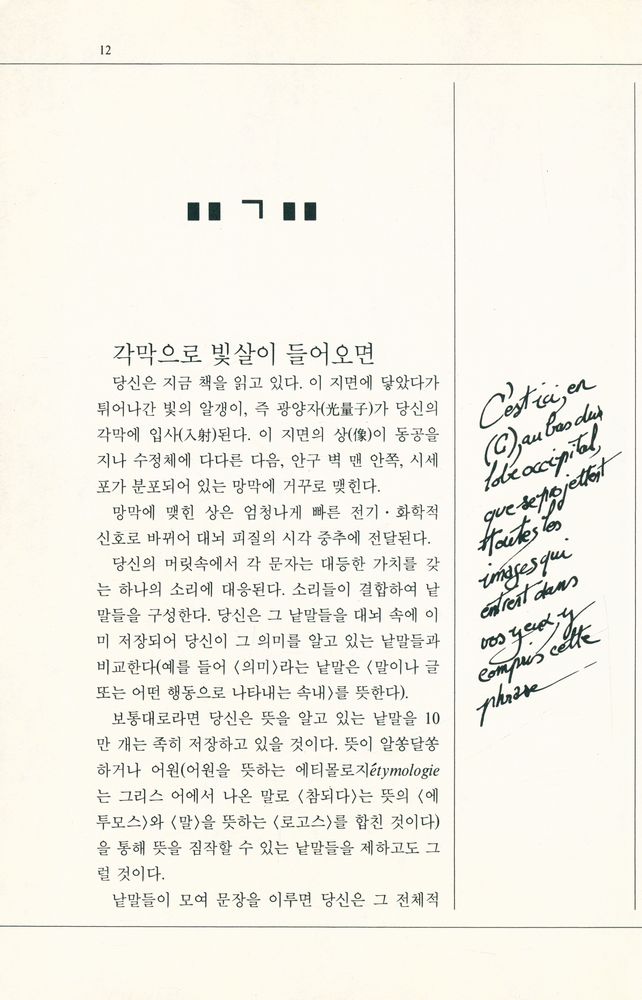 12
ㄱ
각막으로 빛살이 들어오면
당신은 지금 책을 읽고 있다. 이 지면에 닿았다가
튀어나간 빛의 알갱이, 즉 광양자(光量子)가 당신의
각막에 입사(入射)된다. 이 지면의 상(像)이 동공을
지나 수정체에 다다른 다음, 안구 벽 맨 안쪽, 시세
포가 분포되어 있는 망막에 거꾸로 맺힌다.
망막에 맺힌 상은 엄청나게 빠른 전기·화학적
신호로 바뀌어 대뇌 피질의 시각 중추에 전달된다.
당신의 머릿속에서 각 문자는 대등한 가치를 갖
는 하나의 소리에 대응된다. 소리들이 결합하여 낱
말들을 구성한다. 당신은 그 낱말들을 대뇌 속에 이
미 저장되어 당신이 그 의미를 알고 있는 낱말들과
비교한다(예를 들어 〈의미〉라는 낱말은 〈말이나 글
또는 어떤 행동으로 나타내는 속내〉를 뜻한다).
보통대로라면 당신은 뜻을 알고 있는 낱말을 10
만 개는 족히 저장하고 있을 것이다. 뜻이 알쏭달쏭
하거나 어원(어원을 뜻하는 에티몰로지étymologie
는 그리스 어에서 나온 말로 〈참되다〉는 뜻의 〈에
투모스〉와 〈말〉을 뜻하는 〈로고스〉를 합친 것이다)
을 통해 뜻을 짐작할 수 있는 낱말들을 제하고도 그
럴 것이다.
낱말들이 모여 문장을 이루면 당신은 그 전체적
C'est ici, en
(C), au bas du
lobe occipital,
que se projettent
toutes les
images qui
entrent dans
vos yeux, y
compris cette
phrase